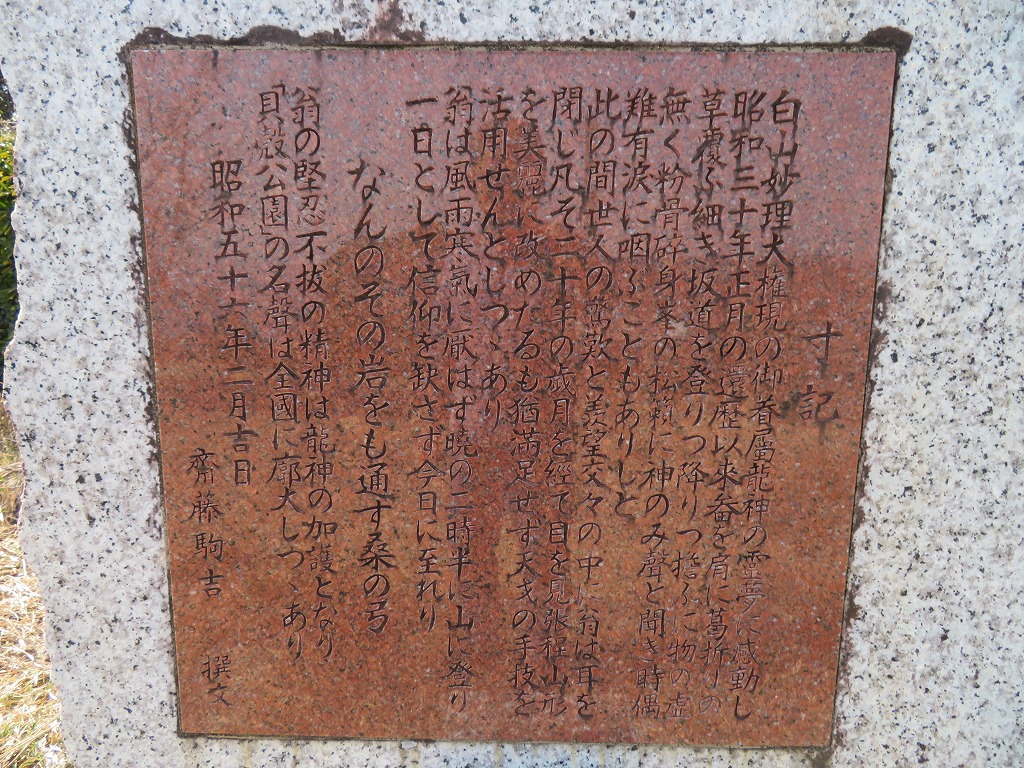 寸記
白山妙理大権現の御眷属龍神の霊夢に感動し
昭和三十年正月の還歴以来畚を肩に葛折りの
草覆ふ細き坂道を登りつ降りつ擔ふに物の虚
無く粉骨砕身峯の松籟に神のみ聲と聞き時偶
難有涙に咽ぶこともありしと
此の間世人の驚歎と羨望交々の中に翁は耳を
閉じ凡そ二十年の歳月を經て目を見張程山形
を美麗に改めたるも猶満足せず天戈の手技を
活用せんとしつゝあり
翁は風雨寒氣に厭はず曉の二時半に山に登り
一日として信仰を缺さず今日に至れり
なんのその岩をも通す桑の弓
翁の堅忍不抜の精神は龍神の加護となり
「貝殻公園」の名聲は全國に廓大しつゝあり
昭和五十六年二月吉日
齋藤駒吉 撰文